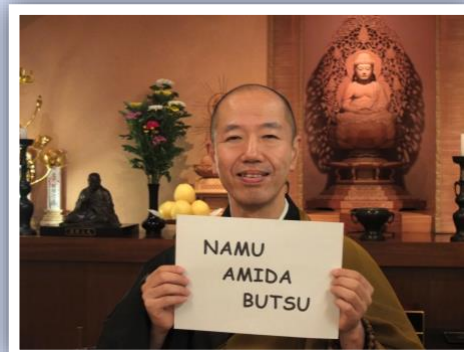 NAMU
AMIDA
BUTSU